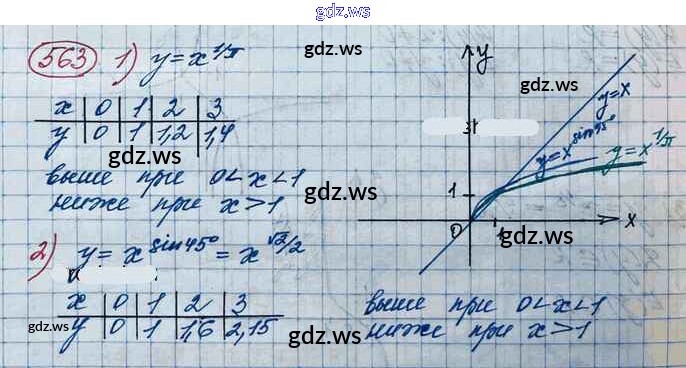 gdz.ws
563 1) y = x^1/π
gdz.ws
x | 0 | 1 | 2 | 3
y | 0 | 1 | 1,2 | 1,4
gdz.ws
выше при 0<x<1
ниже при x>1
2) y = x^sin45° = x^√2/2
x | 0 | 1 | 2 | 3
y | 0 | 1 | 1,6 | 2,15
gdz.ws
gdz.ws
y
gdz.ws
y=x
y=x^sin45°
y=x^1/π
gdz.ws
1
0
1
x
gdz.ws
gdz.ws
выше при 0<x<1
ниже при x>1
gdz.ws
gdz.ws